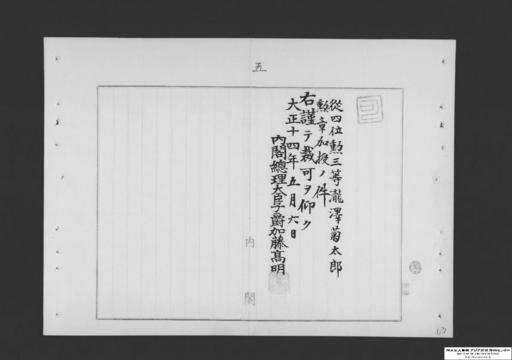 五
從四位勲三等瀧澤菊太郎
勲章加授ノ件
右謹テ裁可ヲ仰ク
大正十四年五月六日
内閣總理大臣子爵加藤高明
内閣